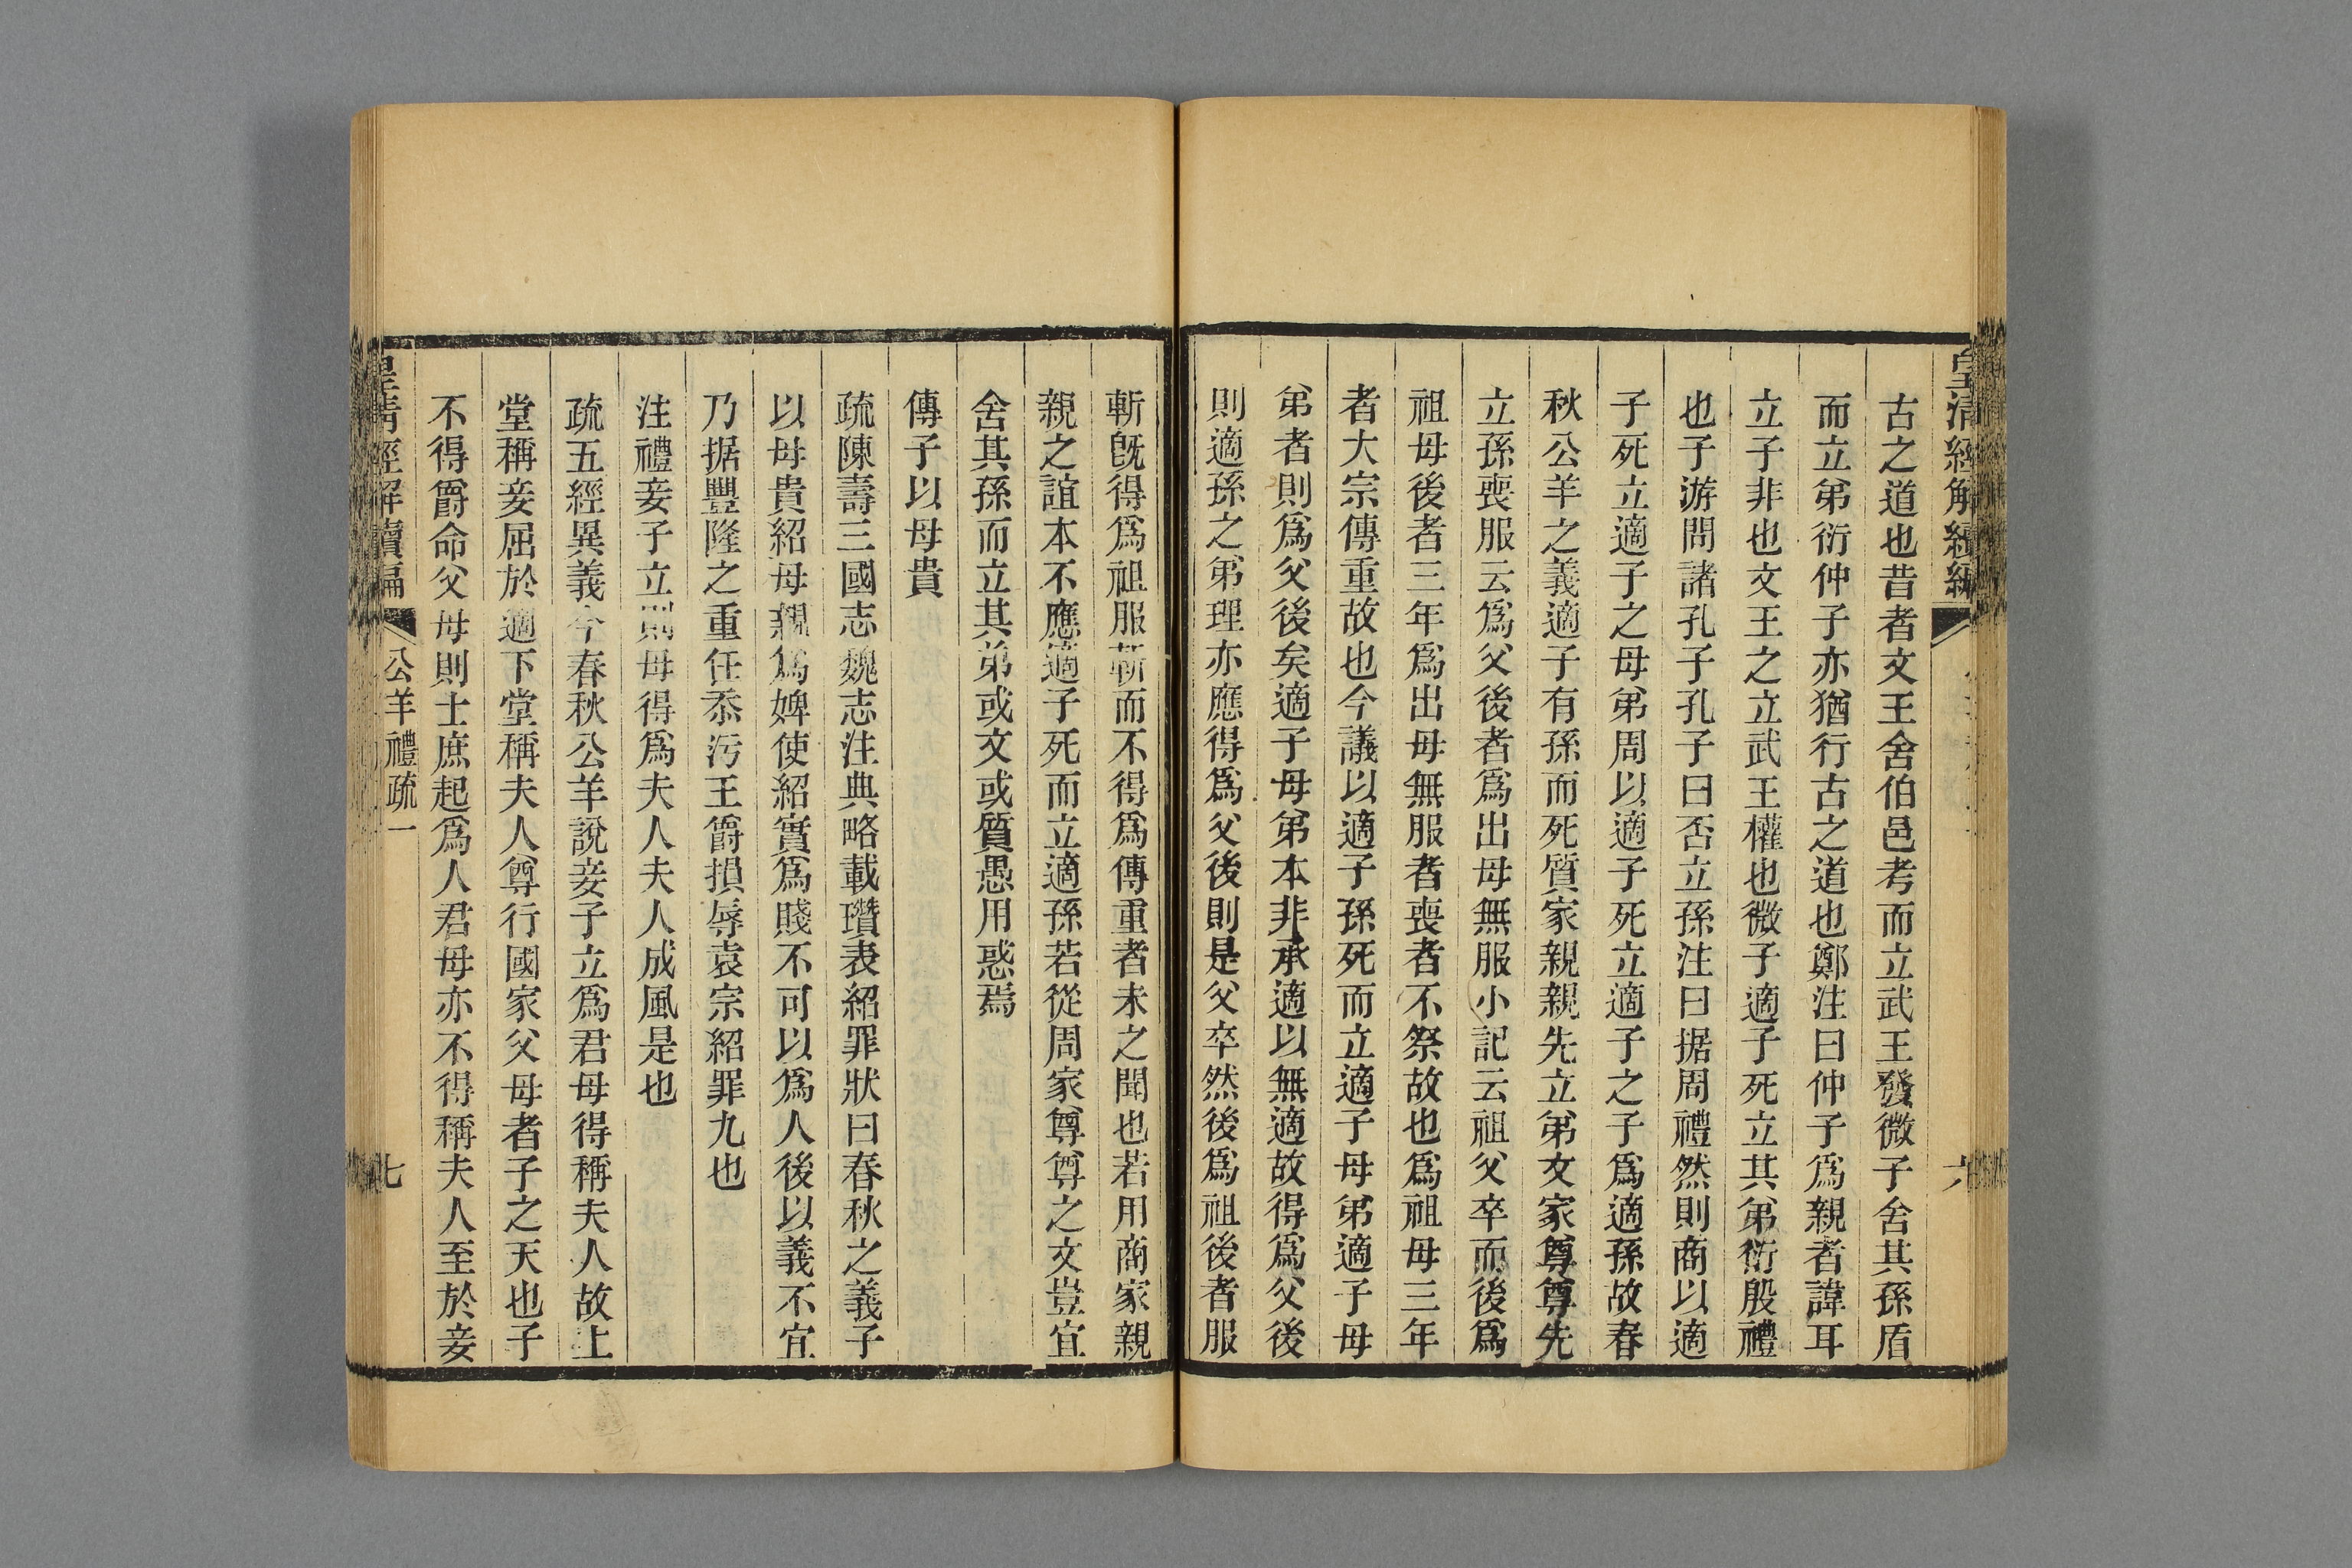 皇清經解續編
六
古之道也昔者文王舍伯邑考而立武王發微子舍其孫盾
而立弟衍仲子亦猶行古之道也鄭注曰仲子爲親者諱耳
立子非也文王之立武王權也微子適子死立其弟衍殷禮
也子游問諸孔子孔子曰否立孫注曰据周禮然則商以適
子死立適子之母弟周以適子死立適子之子爲適孫故春
秋公羊之義適子有孫而死質家親親先立弟文家尊尊先
立孫喪服云爲父後者爲出母無服小記云祖父卒而後爲
祖母後者三年爲出母無服者喪者不祭故也爲祖母三年
者大宗傳重故也今議以適子孫死而立適子母弟適子母
弟者則爲父後矣適子母弟本非承適以無適故得爲父後
則適孫之弟理亦應得爲父後則是父卒然後爲祖後者服
斬旣得爲祖服斬而不得爲傳重者未之聞也若用商家親
親之誼本不應適子死而立適孫若從周家尊尊之文豈宜
舍其孫而立其弟或文或質愚用惑焉
傳子以母貴
疏陳壽三國志魏志注典略載瓚表紹罪狀曰春秋之義子
以母貴紹母親爲婢使紹實爲賤不可以爲人後以義不宜
乃据豐隆之重任忝污王爵損辱袁宗紹罪九也
注禮妾子立則母得爲夫人夫人成風是也
疏五經異義今春秋公羊說妾子立爲君母得稱夫人故上
堂稱妾屈於適下堂稱夫人尊行國家父母者子之天也子
不得爵命父母則士庶起爲人君母亦不得稱夫人至於妾
皇清經解續編
公羊禮疏一
七